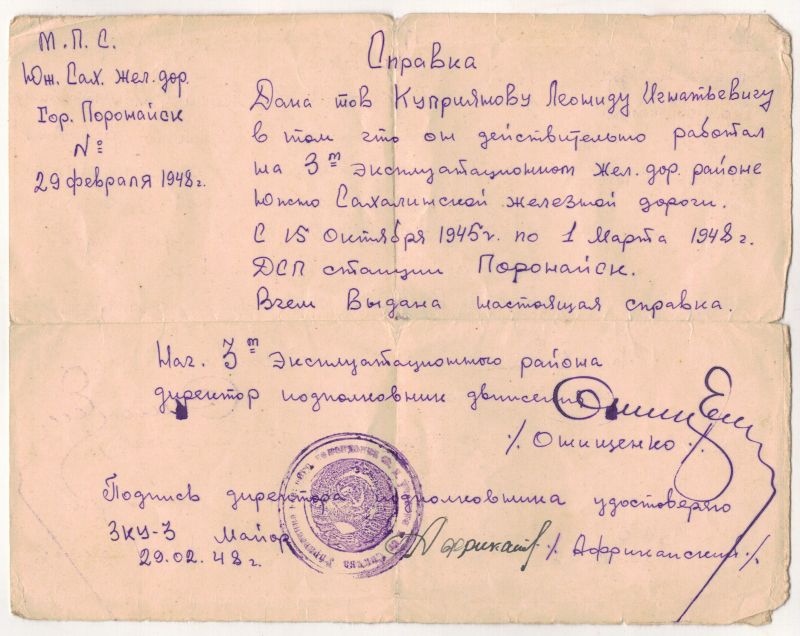 М.П.С.
Юж. Сах. жел. дор.
Гор. Поронайск
№
29 февраля 1948г.
Справка
Дана тов Куприянову Леониду Игнатьевичу
в том что он действительно работал
на 3м Эксплуатационном жел. дор. районе
Южно Сахалинской железной дороги.
С 15 Октября 1945г. по 1 Марта 1948г.
ДСП станции Поронайск.
Вчем Выдана настоящая справка.
Нач. 3m Эксплуатационного района
директор подполковник движения
/. Онищенко ./.
Подпись директора подполковника удостоверяю
ЗКУ-3 Майор ./. Африканский ./.
29.02.48г.